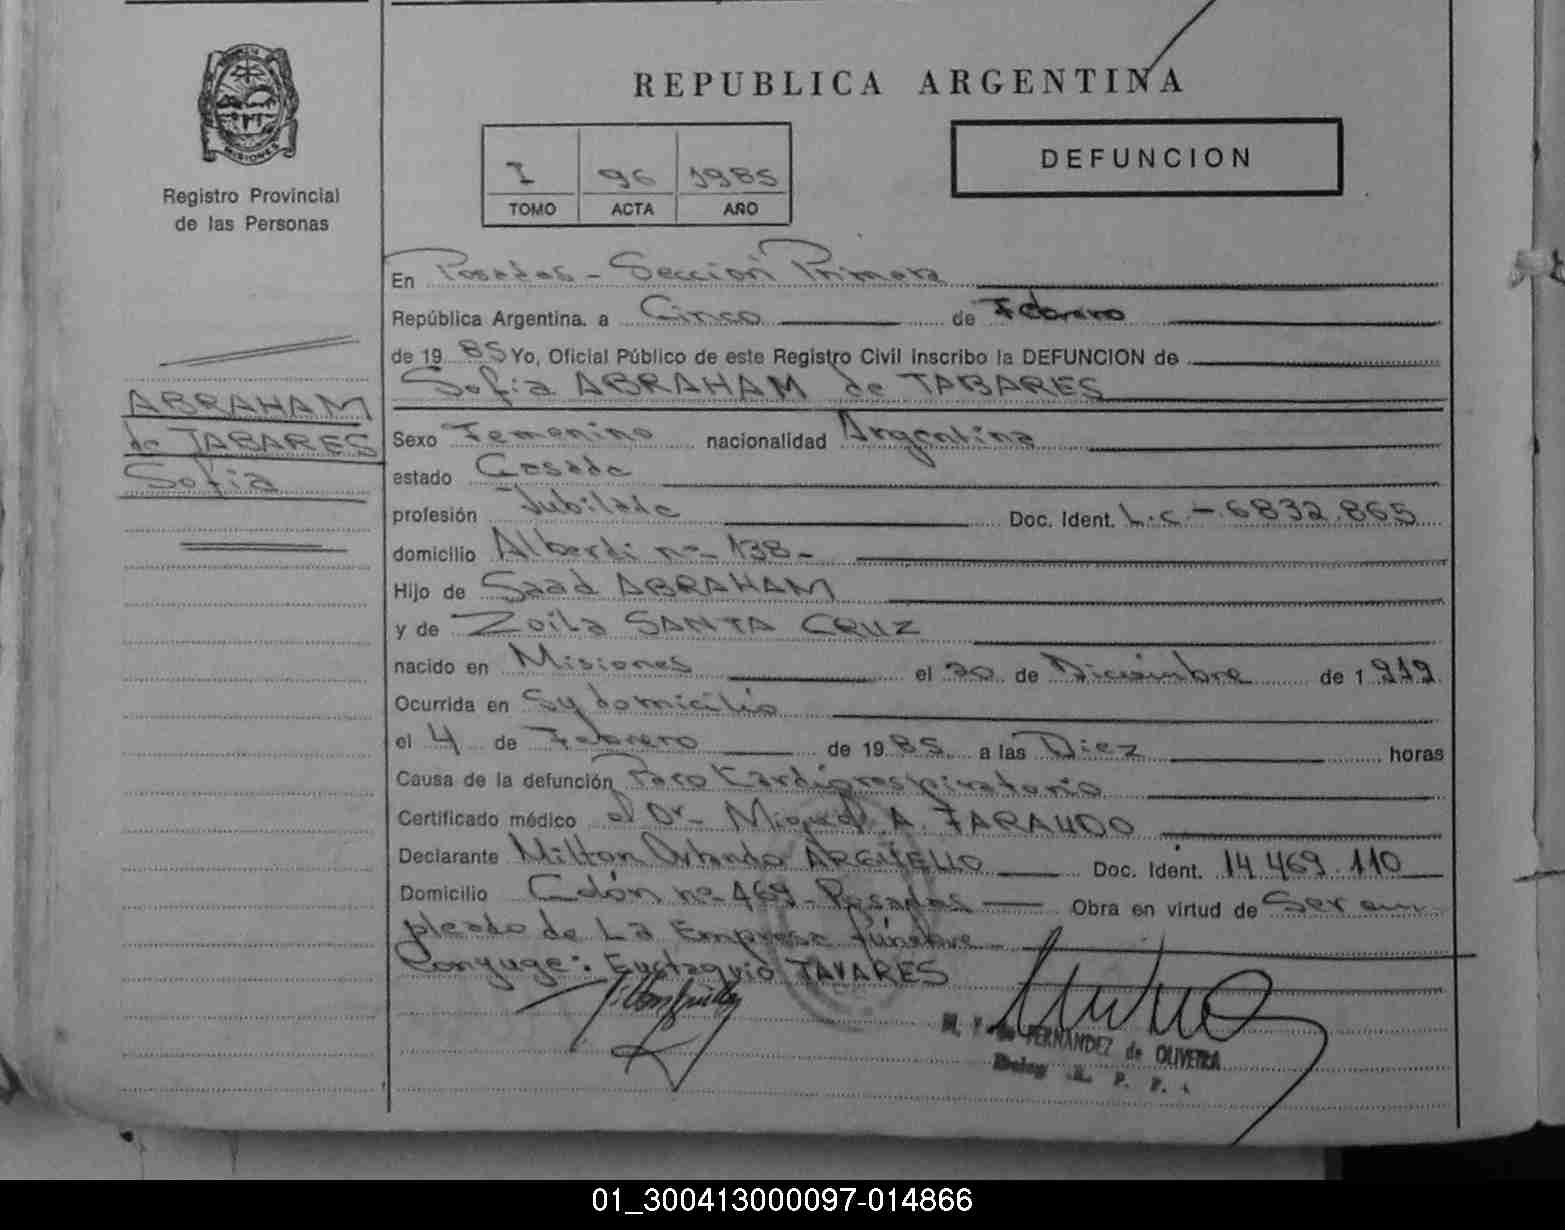 MISIONES
Registro Provincial
de las Personas
ABRAHAM
de TABARES
Sofia
REPUBLICA ARGENTINA
DEFUNCION
I 96 1985
TOMO ACTA AÑO
En Posadas - Sección Primera
República Argentina. a Cinco de Febrero
de 19 85 Yo, Oficial Público de este Registro Civil inscribo la DEFUNCION de
Sofia ABRAHAM de TABARES
Sexo Femenino nacionalidad Argentina
estado Casada
profesión Jubilada Doc. Ident. L.c. - 6832.865
domicilio Alberdi nº 138 -
Hijo de Saad ABRAHAM
y de Zoila SANTA CRUZ
nacido en Misiones el 30 de Diciembre de 1 919
Ocurrida en Su domicilio
el 4 de Febrero de 19 85 a las Diez horas
Causa de la defunción Paro Kardiorespiratorio
Certificado médico el Dr. Miguel A. FARAUDO
Declarante Milton Orlando ARGUELLO Doc. Ident. 14.469.110
Domicilio Colón nº 469 - Posadas Obra en virtud de Ser em
pleado de La Empresa fúnebre
Conyuge: Eustaquio TAVARES
FERNANDEZ de OLIVEIRA
Deleg. R. P. P.
01_300413000097-014866